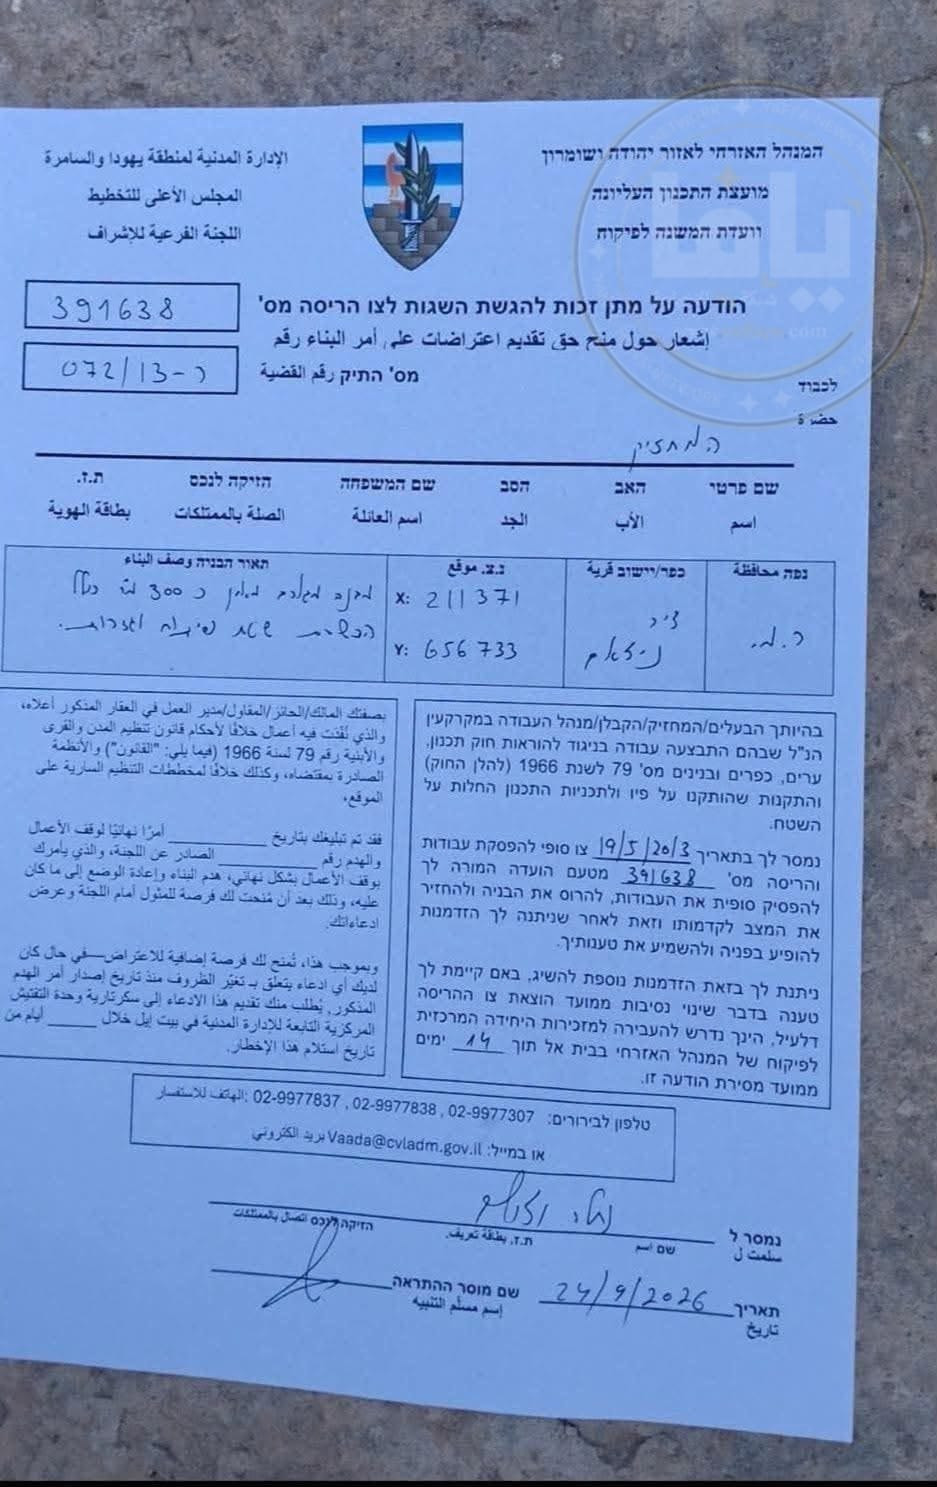 המנהל האזרחי לאזור יהודה ושומרון
מועצת התכנון העליונה
וועדת המשנה לפיקוח
الإدارة المدنية لمنطقة يهودا والسامرة
المجلس الأعلى للتخطيط
اللجنة الفرعية للإشراف
يافا
הודעה על מתן זכות להגשת השגות לצו הריסה מס' 391638
إشعار حول منح حق تقديم اعتراضات على أمر البناء رقم
מס' התיק رقم القضية ר-072/13
לכבוד
حضرة
המחזיק
שם פרטי האב הסב שם המשפחה הזיקה לנכס ת.ז.
اسم الأب الجد اسم العائلة الصلة بالممتلكات بطاقة الهوية
נפה محافظة כפר/יישוב قرية נ.צ. موقع תאור הבניה وصف البناء
ר.מ.
דיר
ניזאם
X: 211371
Y: 656733
מבנה מגורים כ 300 מ"ר כולל
הכשרת שטח וגדרות.
בהיותך הבעלים/המחזיק/הקבלן/מנהל העבודה במקרקעין
הנ"ל שבהם התבצעה עבודה בניגוד להוראות חוק תכנון,
ערים, כפרים ובנינים מס' 79 לשנת 1966 (להלן החוק)
והתקנות שהותקנו על פיו ולתכניות התכנון החלות על
השטח.
נמסר לך בתאריך 19/5/2013 צו סופי להפסקת עבודות
והריסה מס' 391638 מטעם הועדה המורה לך
להפסיק סופית את העבודות, להרוס את הבניה ולהחזיר
את המצב לקדמותו וזאת לאחר שניתנה לך הזדמנות
להופיע בפניה ולהשמיע את טענותיך.
ניתנת לך בזאת הזדמנות נוספת להשיג, באם קיימת לך
טענה בדבר שינוי נסיבות ממועד הוצאת צו ההריסה
דלעיל, הינך נדרש להעבירה למזכירות היחידה המרכזית
לפיקוח של המנהל האזרחי בבית אל תוך 14 ימים
ממועד מסירת הודעה זו.
بصفتك المالك/الحائز/المقاول/مدير العمل في العقار المذكور أعلاه،
والذي نُفّذت فيه أعمال خلافًا لأحكام قانون تنظيم المدن والقرى
والأبنية رقم 79 لسنة 1966 (فيما يلي: "القانون") والأنظمة
الصادرة بمقتضاه، وكذلك خلافًا لمخططات التنظيم السارية على
الموقع،
فقد تم تبليغك بتاريخ ________ أمرًا نهائيًا لوقف الأعمال
والهدم رقم ________ الصادر عن اللجنة، والذي يأمرك
بوقف الأعمال بشكل نهائي، هدم البناء وإعادة الوضع إلى ما كان
عليه، وذلك بعد أن مُنحت لك فرصة للمثول أمام اللجنة وعرض
ادعاءاتك.
وبموجب هذا، تُمنح لك فرصة إضافية للاعتراض—في حال كان
لديك أي ادعاء يتعلق بـ تغيّر الظروف منذ تاريخ إصدار أمر الهدم
المذكور, يُطلب منك تقديم هذا الادعاء إلى سكرتارية وحدة التفتيش
المركزية التابعة للإدارة المدنية في بيت إيل خلال _____ أيام من
تاريخ استلام هذا الإخطار.
טלפון לבירורים: 02-9977307 , 02-9977838 , 02-9977837 :الهاتف للاستفسار
או במייל: Vaada@cvladm.gov.il بريد الكتروني
נמסר ל
سلمت ل
שם اسم ת.ז. بطاقة تعريف. הזיקה לנכס اتصال بالممتلكات
תאריך 24/9/2026 שם מוסר ההתראה
تاريخ إسم مسلّم التنبيه